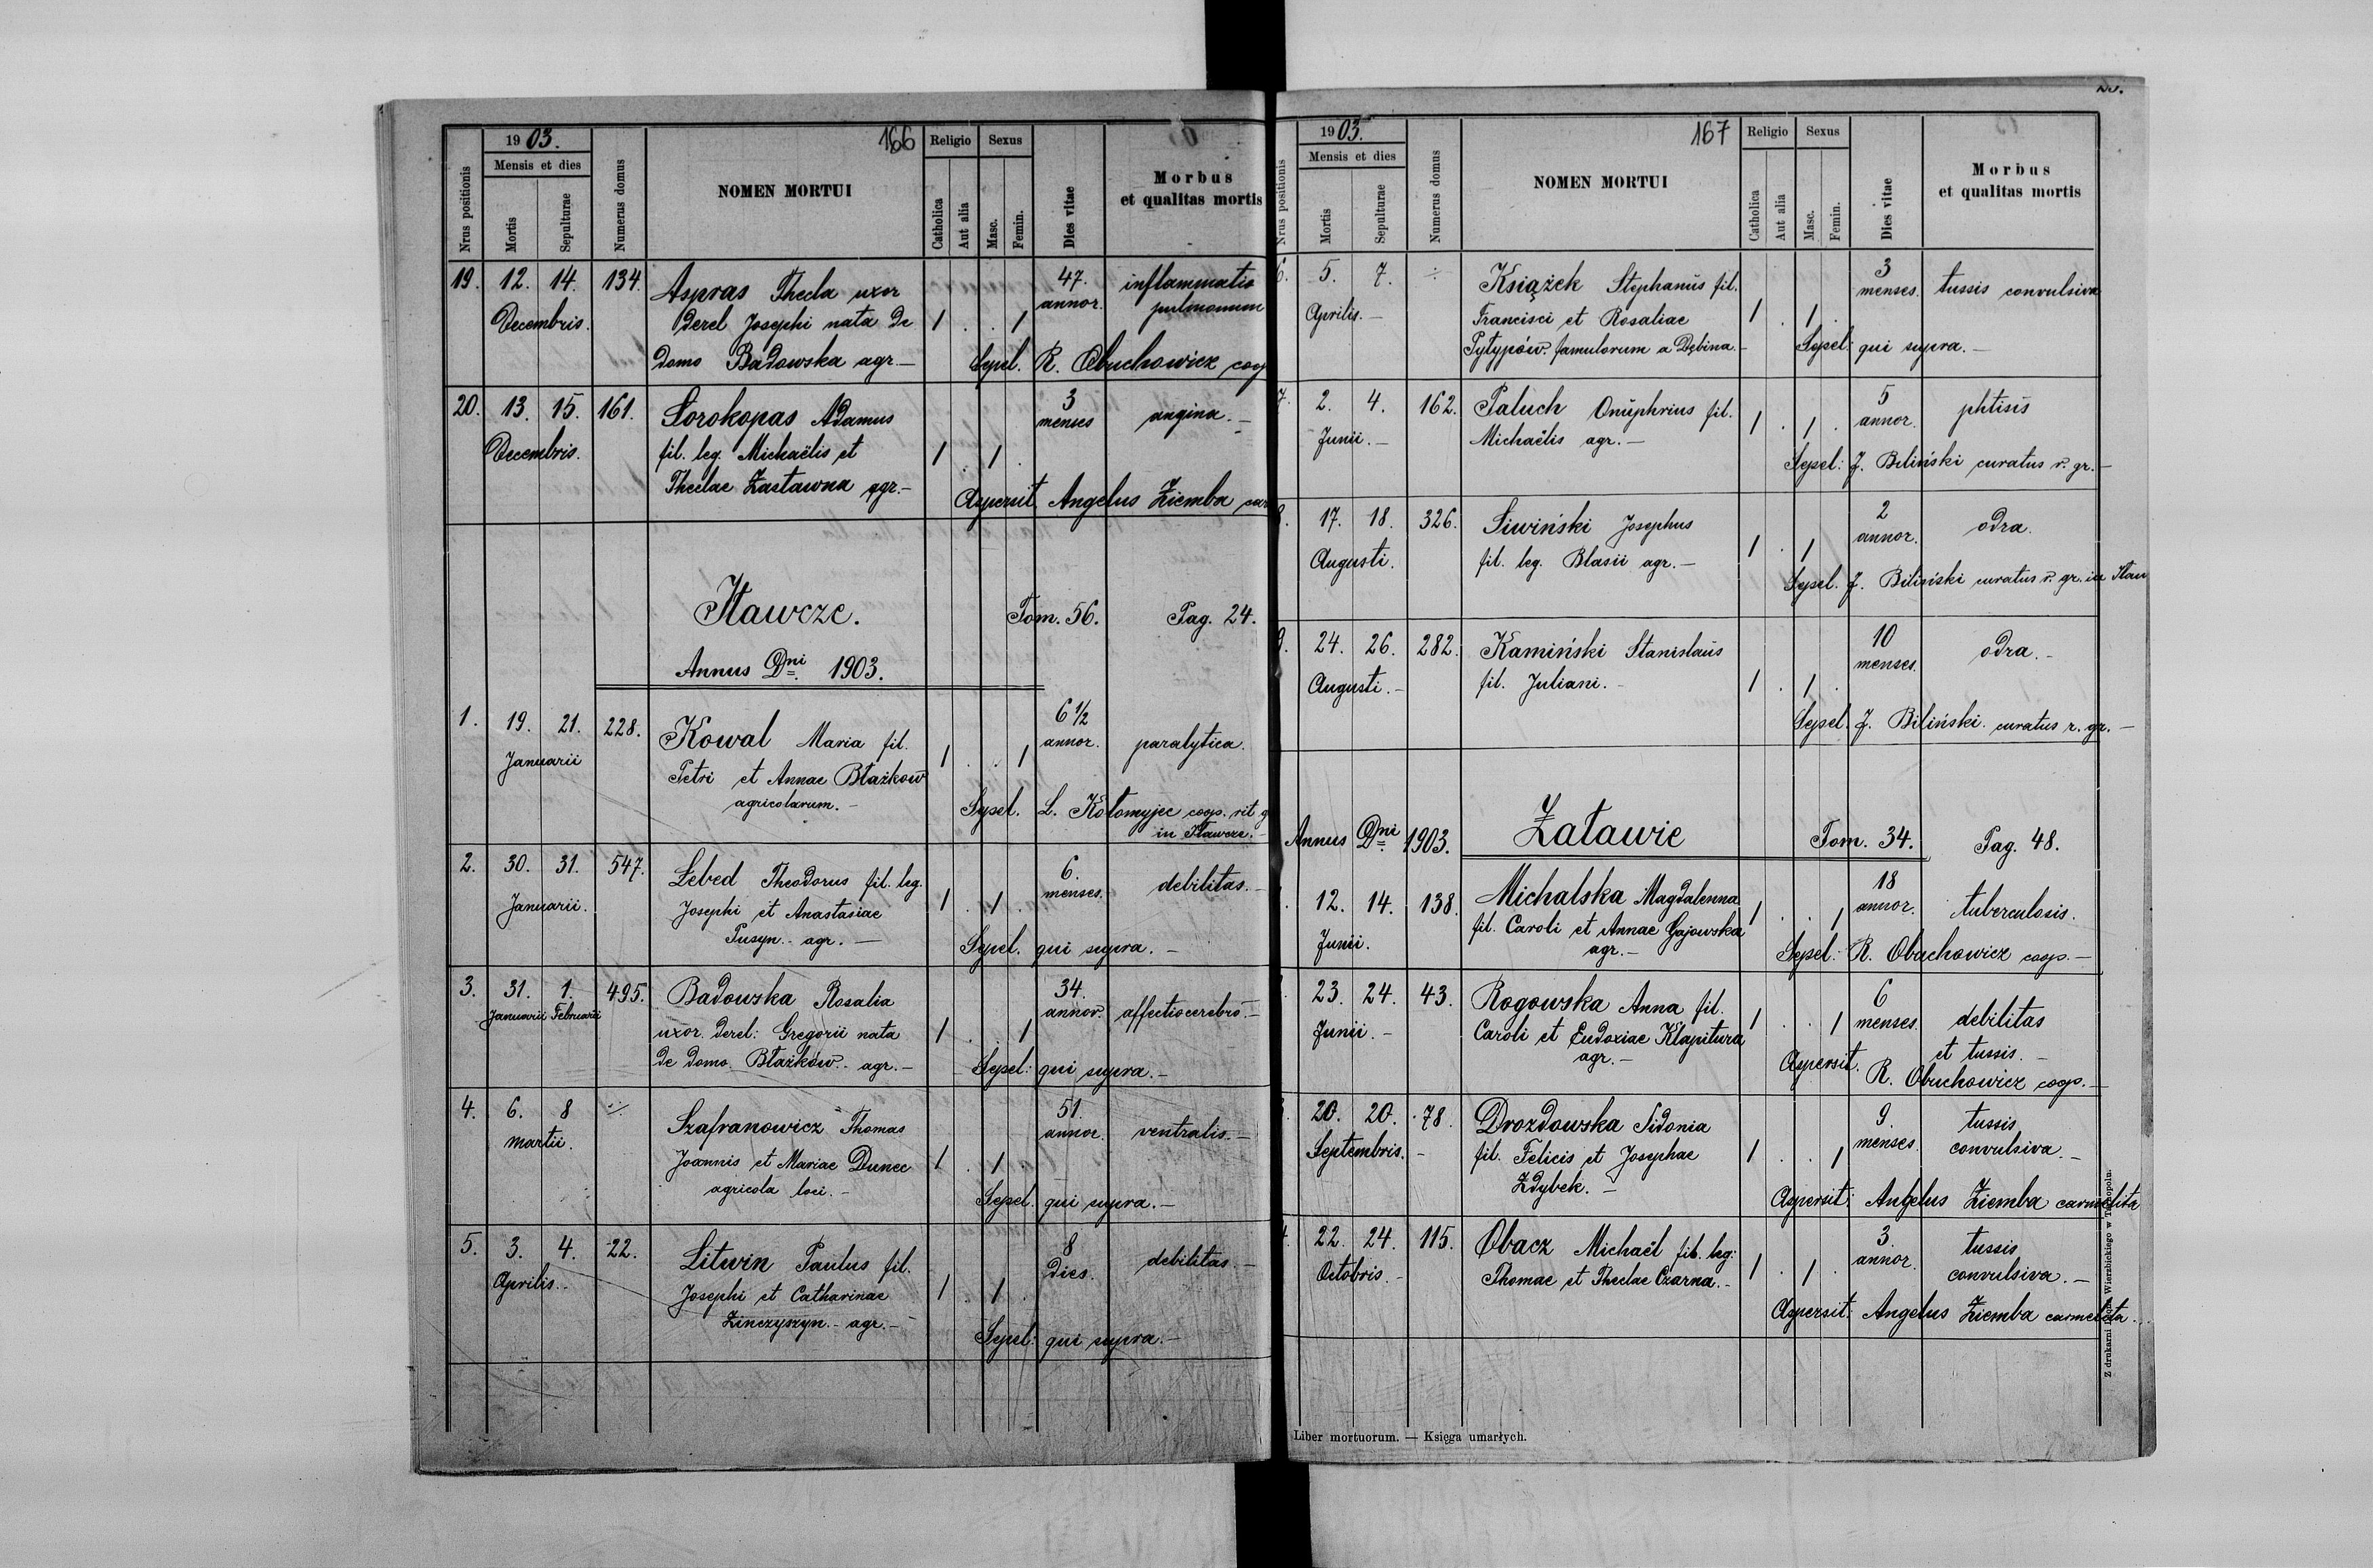 1903.
166
Nrus positionis
Mensis et dies
Mortis
Sepulturae
Numerus domus
NOMEN MORTUI
Religio
Catholica
Aut alia
Sexus
Masc.
Femin.
Dies vitae
Morbus
et qualitas mortis
19. 12. 14. 134. Aspras Thecla uxor 47. inflammatio
Decembris. derel Josephi nata de 1 . . 1 annor. pulmonum
domo Badowska agr.— Sepel. R. Obuchowicz coop
20. 13. 15. 161. Sorokopas Adamus 3 angina.—
Decembris. fil. leg. Michaëlis et 1 . 1 . menses
Theclae Zastawna agr.— Aspersit Angelus Ziemba car
Iławcze. Tom. 56. Pag. 24.
Annus Dni 1903.
1. 19. 21. 228. Kowal Maria fil. 6 1/2 paralytica.
Januarii Petri et Annae Błażków 1 . . 1 annor.
agricolarum.— Sepel. L. Kołomyjec coop. rit g
in Iławcze.—
2. 30. 31. 547. Lebed Theodorus fil. leg. 6. debilitas.—
Januarii. Josephi et Anastasiae 1 . 1 . menses.
Pusyn.- agr.— Sepel. qui supra.—
3. 31. 1. 495. Badowska Rosalia 34. affectio cerebro.—
Januarii Februarii uxor. derel: Gregorii nata 1 . . 1 annor.
de domo Błażków.- agr.— Sepel: qui supra.—
4. 6. 8 Szafranowicz Thomas 51. ventralis.—
Martii. Joannis et Mariae Dunec 1 . 1 . annor.
agricola loci.— Sepel. qui supra.—
5. 3. 4. 22. Litwin Paulus fil. 8 debilitas.—
Aprilis.- Josephi et Catharinae 1 . 1 . dies.
Zinczyszyn.- agr.— Sepel: qui supra.—
1903.
167
Nrus positionis
Mensis et dies
Mortis
Sepulturae
Numerus domus
NOMEN MORTUI
Religio
Catholica
Aut alia
Sexus
Masc.
Femin.
Dies vitae
Morbus
et qualitas mortis
6. 5. 7. ÷ Książek Stephanus fil. 3 tussis convulsiva
Aprilis.— Francisci et Rosaliae 1 . 1 . menses.
Pytypów. famulorum a Dębina.— Sepel: qui supra.—
7. 2. 4. 162. Paluch Onuphrius fil. 5 phtisis
Junii.— Michaëlis agr.— 1 . 1 . annor.
Sepel: J. Biliński curatus r. gr.—
8. 17. 18. 326. Siwiński Josephus 2 odra.
Augusti. fil. leg. Blasii agr.— 1 . 1 annor.
Sepel. J. Biliński curatus r. gr. in Iław
9. 24. 26. 282. Kamiński Stanislaus 10 odra.—
Augusti.— fil. Juliani.— 1 . 1 . menses.
Sepel. J. Biliński. curatus r. gr.—
Annus Dni 1903. Załawie Tom. 34. Pag. 48.
12. 14. 138. Michalska Magdalenna 18 tuberculosis.
Junii. fil. Caroli et Annae Gajowska 1 . . 1 annor.
agr.— Sepel: R. Obuchowicz coop.—
23. 24. 43. Rogowska Anna fil. 6 debilitas
Junii.— Caroli et Eudoxiae Kłapitura 1 . . 1 menses. et tussis.—
agr.— Aspersit. R. Obuchowicz coop.—
20. 20. 78. Drozdowska Sidonia 9. tussis
Septembris.— fil. Felicis et Josephae 1 . . 1 menses. convulsiva.—
Zdybek.— Aspersit: Angelus Ziemba carmelita
22. 24. 115. Obacz Michaël fil. leg: 3. tussis
Octobris.— Thomae et Theclae Czarna.— 1 . 1 . annor. convulsiva.—
Aspersit: Angelus Ziemba carmelita.
Liber mortuorum. — Księga umarłych.
Z drukarni Wierzbickiego w Tarnopolu.